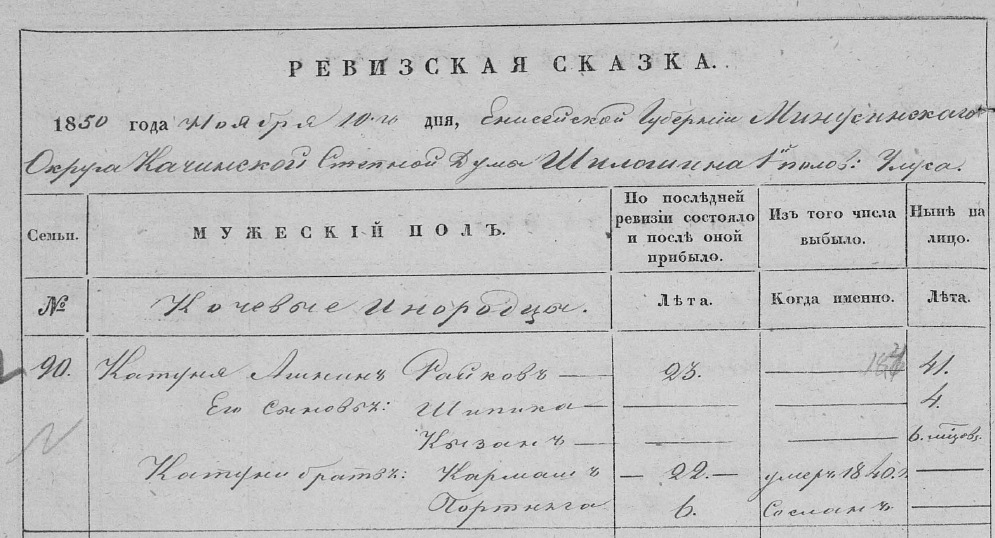 РЕВИЗСКАЯ СКАЗКА.
1850 года Ноября 10-го дня, Енисейской Губернiи Минусинскаго
Округа Качинской Степной Думы Шилошина 1й полов: Улуса.
Семьи. МУЖЕСКIЙ ПОЛЪ. По послѣдней ревизiи состояло и послѣ оной прибыло. Изъ того числа выбыло. Нынѣ на лицо.
№ Кочевые Инородцы. Лѣта. Когда именно. Лѣта.
90. Катуня Райковъ — 23. — 41.
Его сыновья: Шипика — — — 4.
Кызанъ — — — 6. мѣсяц.
Катуни братья: Кармашъ — 22. — умеръ 1840. —
Портняга 6. Сосланъ —